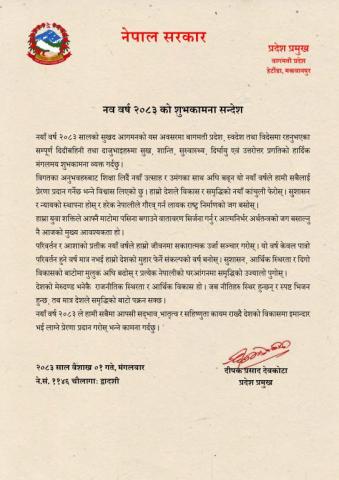 नेपाल सरकार
प्रदेश प्रमुख
बागमती प्रदेश
हेटौंडा, मकवानपुर
नव वर्ष २०८३ को शुभकामना सन्देश
नयाँ वर्ष २०८३ सालको सुखद आगमनको यस अवसरमा बागमती प्रदेश, स्वदेश तथा विदेसमा रहनुभएका
सम्पूर्ण दिदीबहिनी तथा दाजुभाइहरूमा सुख, शान्ति, सुस्वास्थ्य, दिर्घायु एवं उत्तरोत्तर प्रगतिको हार्दिक
मंगलमय शुभकामना व्यक्त गर्दछु।
विगतका अनुभवहरूबाट शिक्षा लिदैं नयाँ उत्साह र उमंगका साथ अघि बढ्न यो नयाँ वर्षले हामी सबैलाई
प्रेरणा प्रदान गर्नेछ भन्ने विश्वास लिएको छु। हाम्रो देशले विकास र समृद्धिको नयाँ काचुली फेरोस्। सुशासन
र न्यायको स्थापना होस् र हरेक नेपालीले गौरव गर्न लायक राष्ट्र निर्माणको जग बसोस्।
हाम्रा युवा शक्तिले आफ्नै माटोमा पसिना बगाउने वातावरण सिर्जना गर्नु र आत्मनिर्भर अर्थतन्त्रको जग बसाल्नु
नै आजको मुख्य आवश्यकता हो।
परिवर्तन र आशाको प्रतीक नयाँ वर्षले हाम्रो जीवनमा सकारात्मक उर्जा सञ्चार गरोस्। यो वर्ष केवल पात्रो
परिवर्तन हुने वर्ष मात्र नभई हाम्रो देशको मुहार फेर्ने संकल्पको वर्ष बनोस्। सुशासन, आर्थिक स्थिरता र दिगो
विकासको बाटोमा मुलुक अघि बढोस् र प्रत्येक नेपालीको घरआंगनमा समृद्धिको उज्यालो पुगोस्।
देशको मेरुदण्ड भनेकै राजनीतिक स्थिरता र आर्थिक विकास हो। जब नीतिहरु स्थिर हुन्छन् र स्पष्ट भिजन
हुन्छ, तब मात्र देशले समृद्धिको बाटो पक्रन सक्छ।
नयाँ वर्ष २०८३ ले हामी सबैमा आपसी सद्भाव,भातृत्व र सहिष्णुता कायम राख्दै देशको विकासमा इमान्दार
भई लाग्ने प्रेरणा प्रदान गरोस् भन्ने कामना गर्दछु।
२०८३ साल बैशाख ०१ गते, मंगलवार
ने.सं. ११४६ चौलागाः द्वादशी
दीपक प्रसाद देवकोटा
प्रदेश प्रमुख